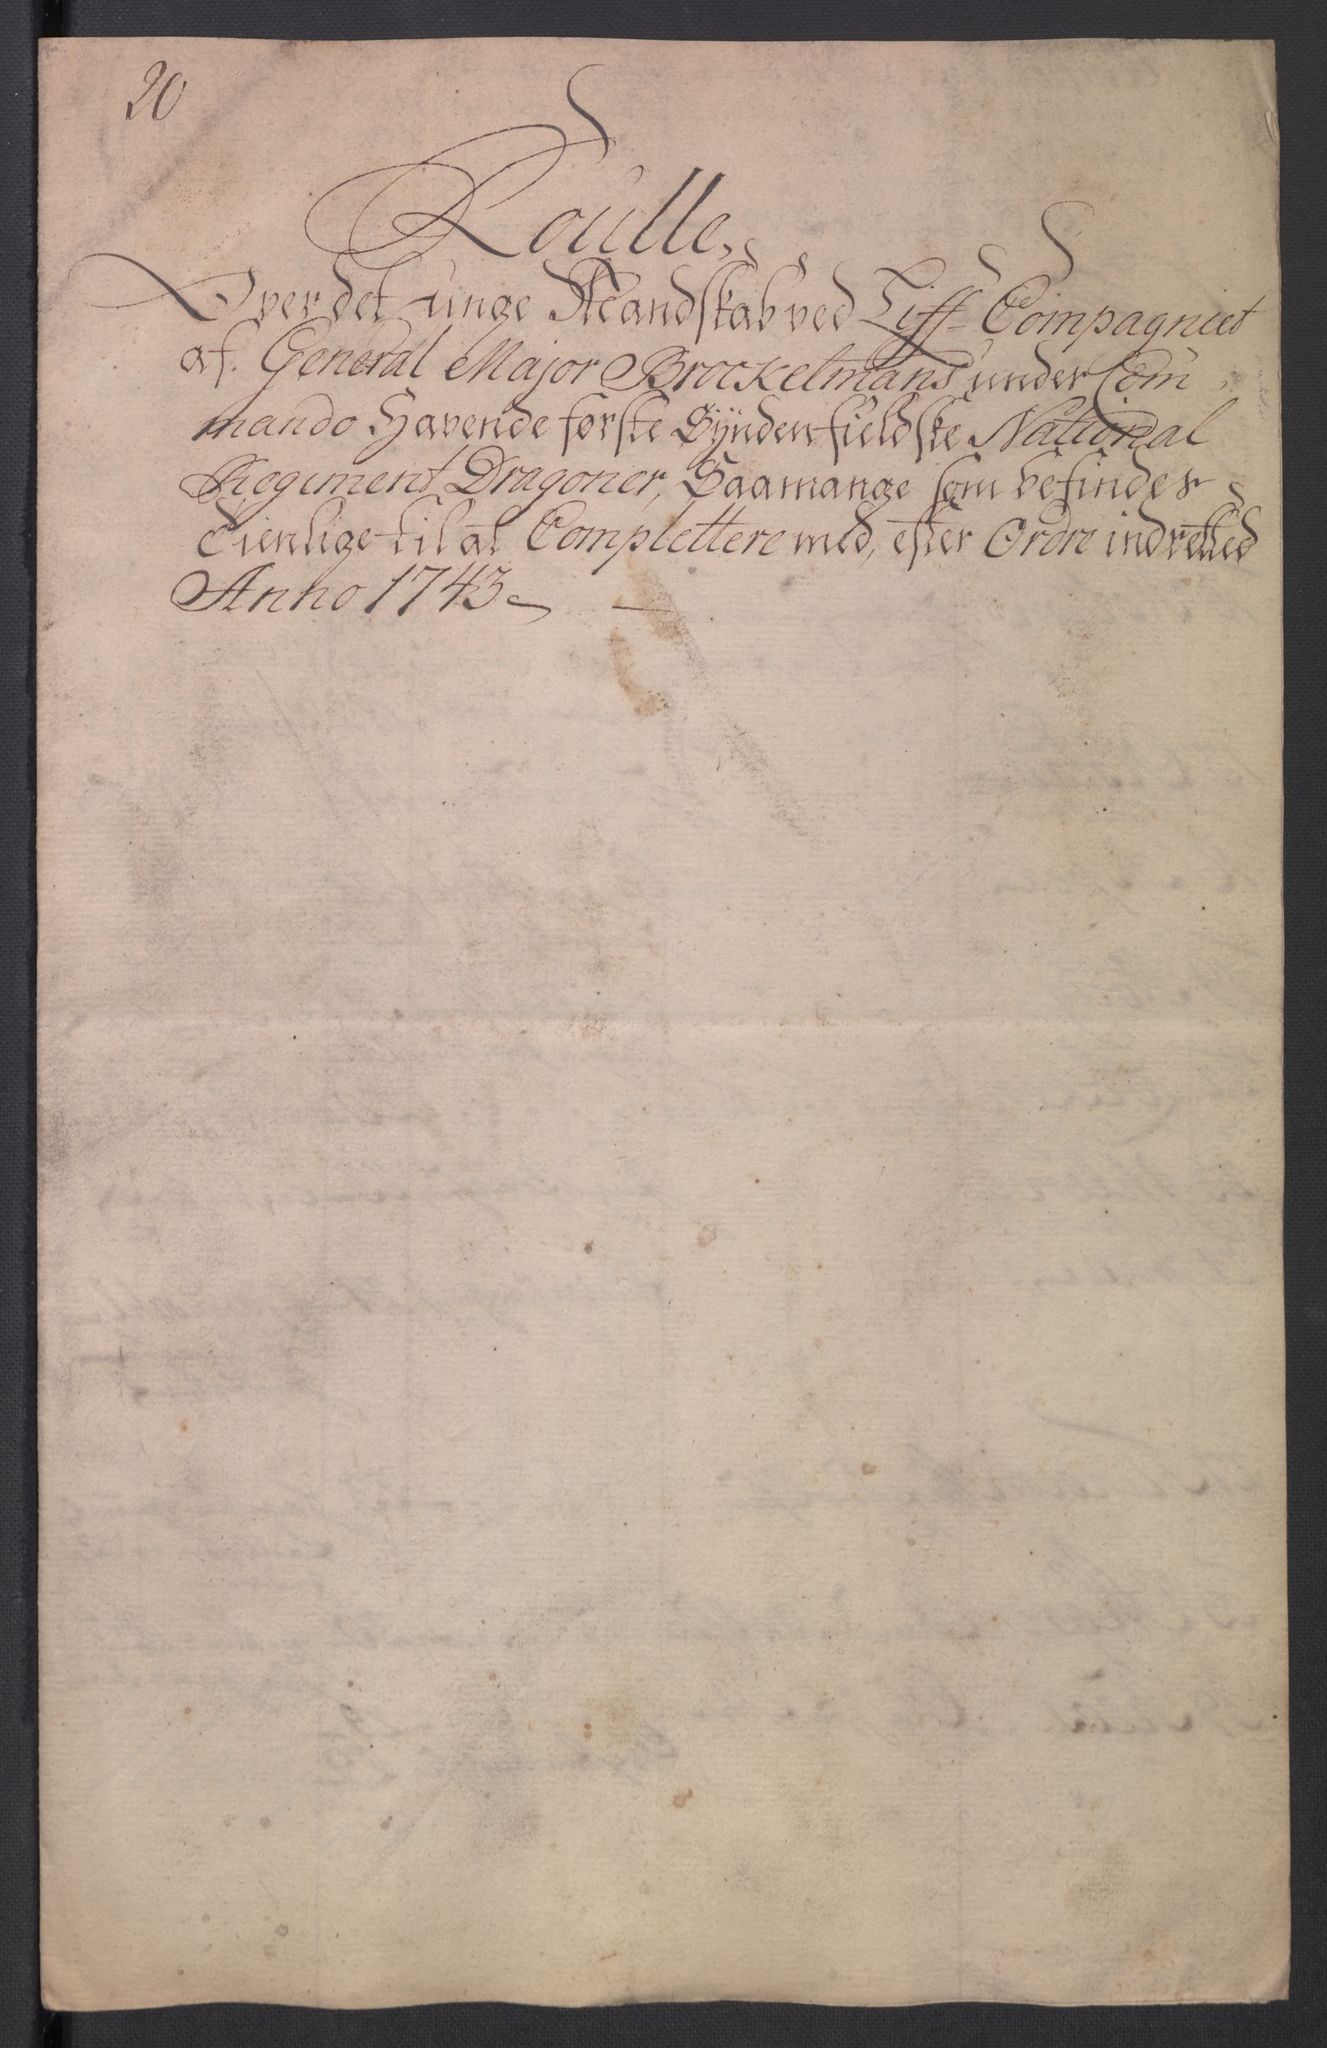 20
Roulle,
Over det unge Mandskab ved Liff-Compagniet
af General Major Brockelmans under Com
mando Havende første Syndenfieldske National
Regiment Dragoner, Saamange som befindes
Tienlige til at Complettere med, efter Ordre indretted
Anno 1743